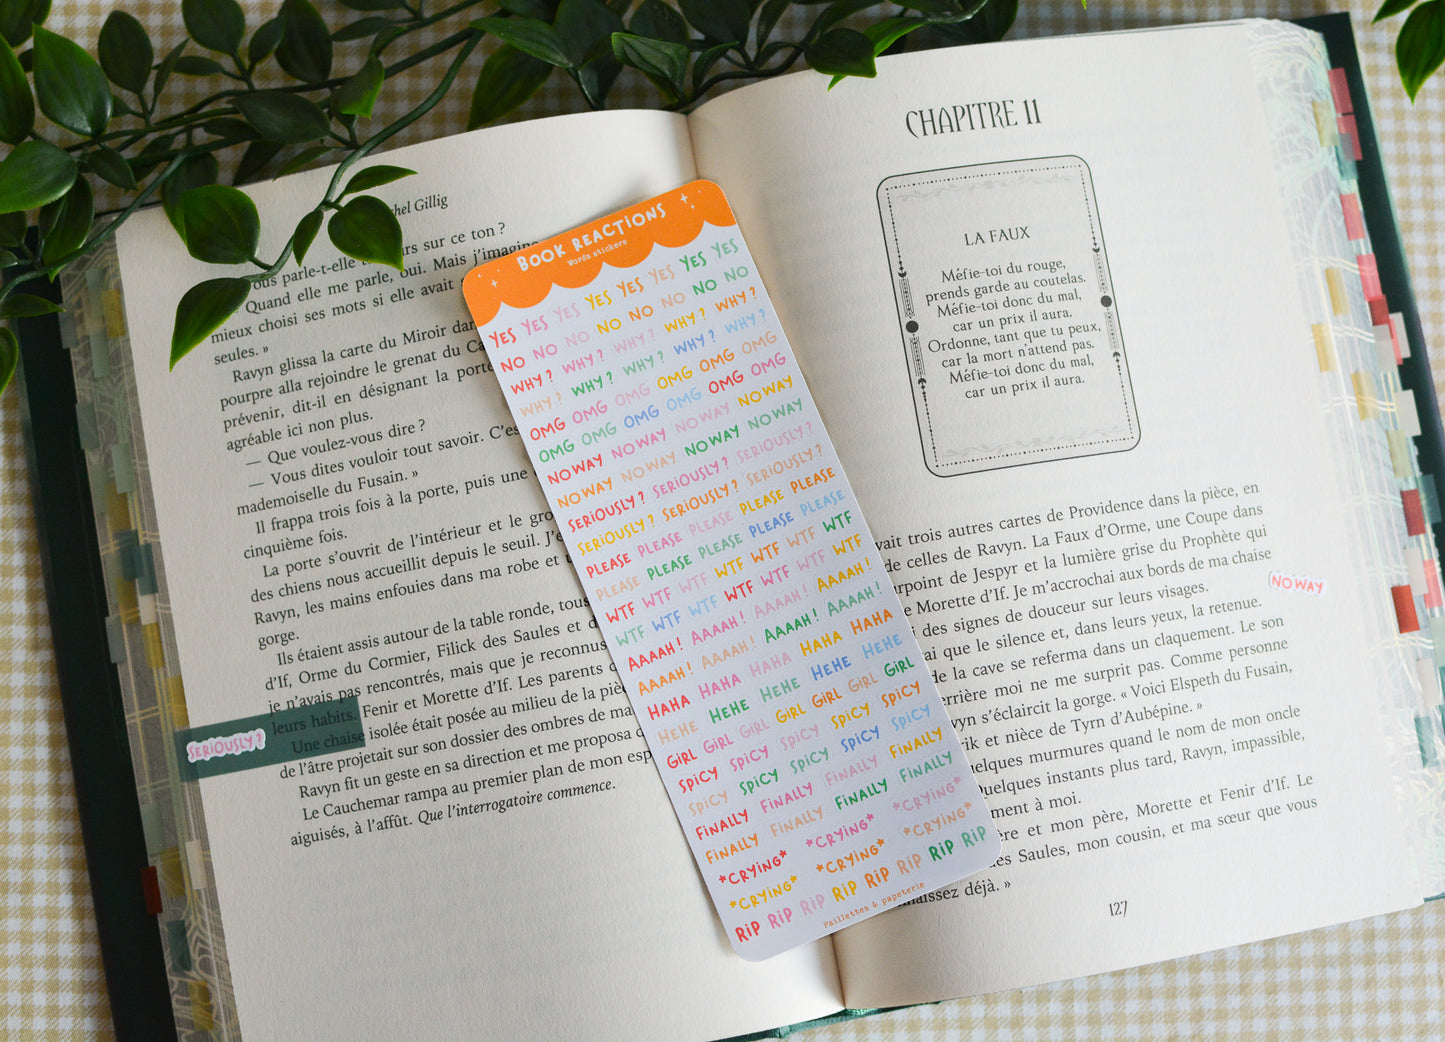 chel Gillig
rs sur ce ton ?
ous parle-t-elle
Quand elle me parle, oui. Mais j'imagine
mieux choisi ses mots si elle avait
seules. »
Ravyn glissa la carte du Miroir dan
pourpre alla rejoindre le grenat du Ca
prévenir, dit-il en désignant la porte
agréable ici non plus.
— Que voulez-vous dire ?
— Vous dites vouloir tout savoir. C'es
mademoiselle du Fusain. »
Il frappa trois fois à la porte, puis une
cinquième fois.
La porte s'ouvrit de l'intérieur et le gro
des chiens nous accueillit depuis le seuil. J'e
Ravyn, les mains enfouies dans ma robe et
gorge.
Ils étaient assis autour de la table ronde, tous
d'If, Orme du Cormier, Filick des Saules et d
je n'avais pas rencontrés, mais que je reconnus
leurs habits. Fenir et Morette d'If. Les parents d
Une chaise isolée était posée au milieu de la pièc
de l'âtre projetait sur son dossier des ombres de ma
Ravyn fit un geste en sa direction et me proposa
Le Cauchemar rampa au premier plan de mon esp
aiguisés, à l'affût. Que l'interrogatoire commence.
SERIOUSLY ?
BOOK REACTIONS
Words stickers
YES YES YES YES YES YES YES YES
NO NO NO NO NO NO NO NO
WHY ? WHY ? WHY ? WHY ? WHY ?
WHY ? WHY ? WHY ? WHY ? WHY ?
OMG OMG OMG OMG OMG OMG
OMG OMG OMG OMG OMG OMG
NO WAY NO WAY NO WAY NO WAY
NO WAY NO WAY NO WAY NO WAY
SERIOUSLY ? SERIOUSLY ? SERIOUSLY ?
SERIOUSLY ? SERIOUSLY ? SERIOUSLY ?
PLEASE PLEASE PLEASE PLEASE PLEASE
PLEASE PLEASE PLEASE PLEASE PLEASE
WTF WTF WTF WTF WTF WTF WTF
WTF WTF WTF WTF WTF WTF WTF
AAAAH ! AAAAH ! AAAAH ! AAAAH !
AAAAH ! AAAAH ! AAAAH ! AAAAH !
HAHA HAHA HAHA HAHA HAHA
HEHE HEHE HEHE HEHE HEHE
GIRL GIRL GIRL GIRL GIRL GIRL GIRL
SPICY SPICY SPICY SPICY SPICY
SPICY SPICY SPICY SPICY SPICY
FINALLY FINALLY FINALLY FINALLY
FINALLY FINALLY FINALLY FINALLY
*CRYING* *CRYING* *CRYING*
*CRYING* *CRYING* *CRYING*
RIP RIP RIP RIP RIP RIP RIP RIP
Paillettes & papeterie
CHAPITRE 11
LA FAUX
Méfie-toi du rouge,
prends garde au coutelas.
Méfie-toi donc du mal,
car un prix il aura.
Ordonne, tant que tu peux,
car la mort n'attend pas.
Méfie-toi donc du mal,
car un prix il aura.
vait trois autres cartes de Providence dans la pièce, en
de celles de Ravyn. La Faux d'Orme, une Coupe dans
urpoint de Jespyr et la lumière grise du Prophète qui
e Morette d'If. Je m'accrochai aux bords de ma chaise
i des signes de douceur sur leurs visages.
ai que le silence et, dans leurs yeux, la retenue.
de la cave se referma dans un claquement. Le son
errière moi ne me surprit pas. Comme personne
vyn s'éclaircit la gorge. « Voici Elspeth du Fusain,
rik et nièce de Tyrn d'Aubépine. »
uelques murmures quand le nom de mon oncle
Quelques instants plus tard, Ravyn, impassible,
ment à moi.
ère et mon père, Morette et Fenir d'If. Le
des Saules, mon cousin, et ma sœur que vous
naissez déjà. »
NO WAY
127